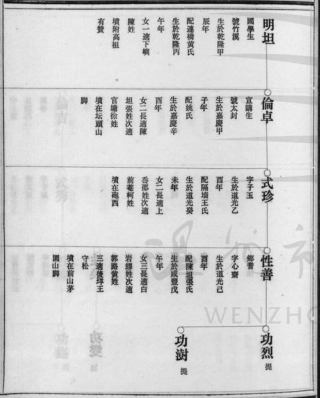 明坦
國學生
號竹溪
生於乾隆甲
辰年
配蓮橋黃氏
生於乾隆丙
午年
女一適下嶼
陳姓
墳附高祖
有贊
倫卓
宣講生
號太封
生於嘉慶甲
子年
配姚氏
生於嘉慶辛
酉年
女二長適陳
坦張姓次適
官塘徐姓
墳在坛頭山
脚
式珍
字子玉
生於道光乙
酉年
配隔墻王氏
生於道光癸
未年
女二長適上
岙邵姓次適
前菴柯姓
墳在砲西
性善
鄉耆
字心齋
生於道光己
酉年
配陳坦張氏
生於咸豐戊
午年
女三長適白
岩繆姓次適
郭路黃姓
三適後垟王
守松
墳在前山茅
園山脚
功烈 提
功澍 提
WENZHO